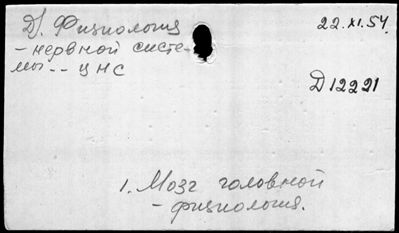 Д. Физиология
22.XI.54.
- нервной систе-
мы -- ЦНС
Д 12221
1. Мозг головной
- физиология.